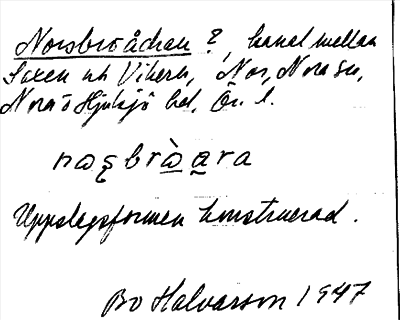 Norsbroådran ?, kanal mellan
Saxen och Vikern, Nor, Nora sn,
Nora o Hjulsjö hd, Ör. l.
nɷʂbrɷ̀ara
Uppslagsformen konstruerad.
Bo Halvarson 1947